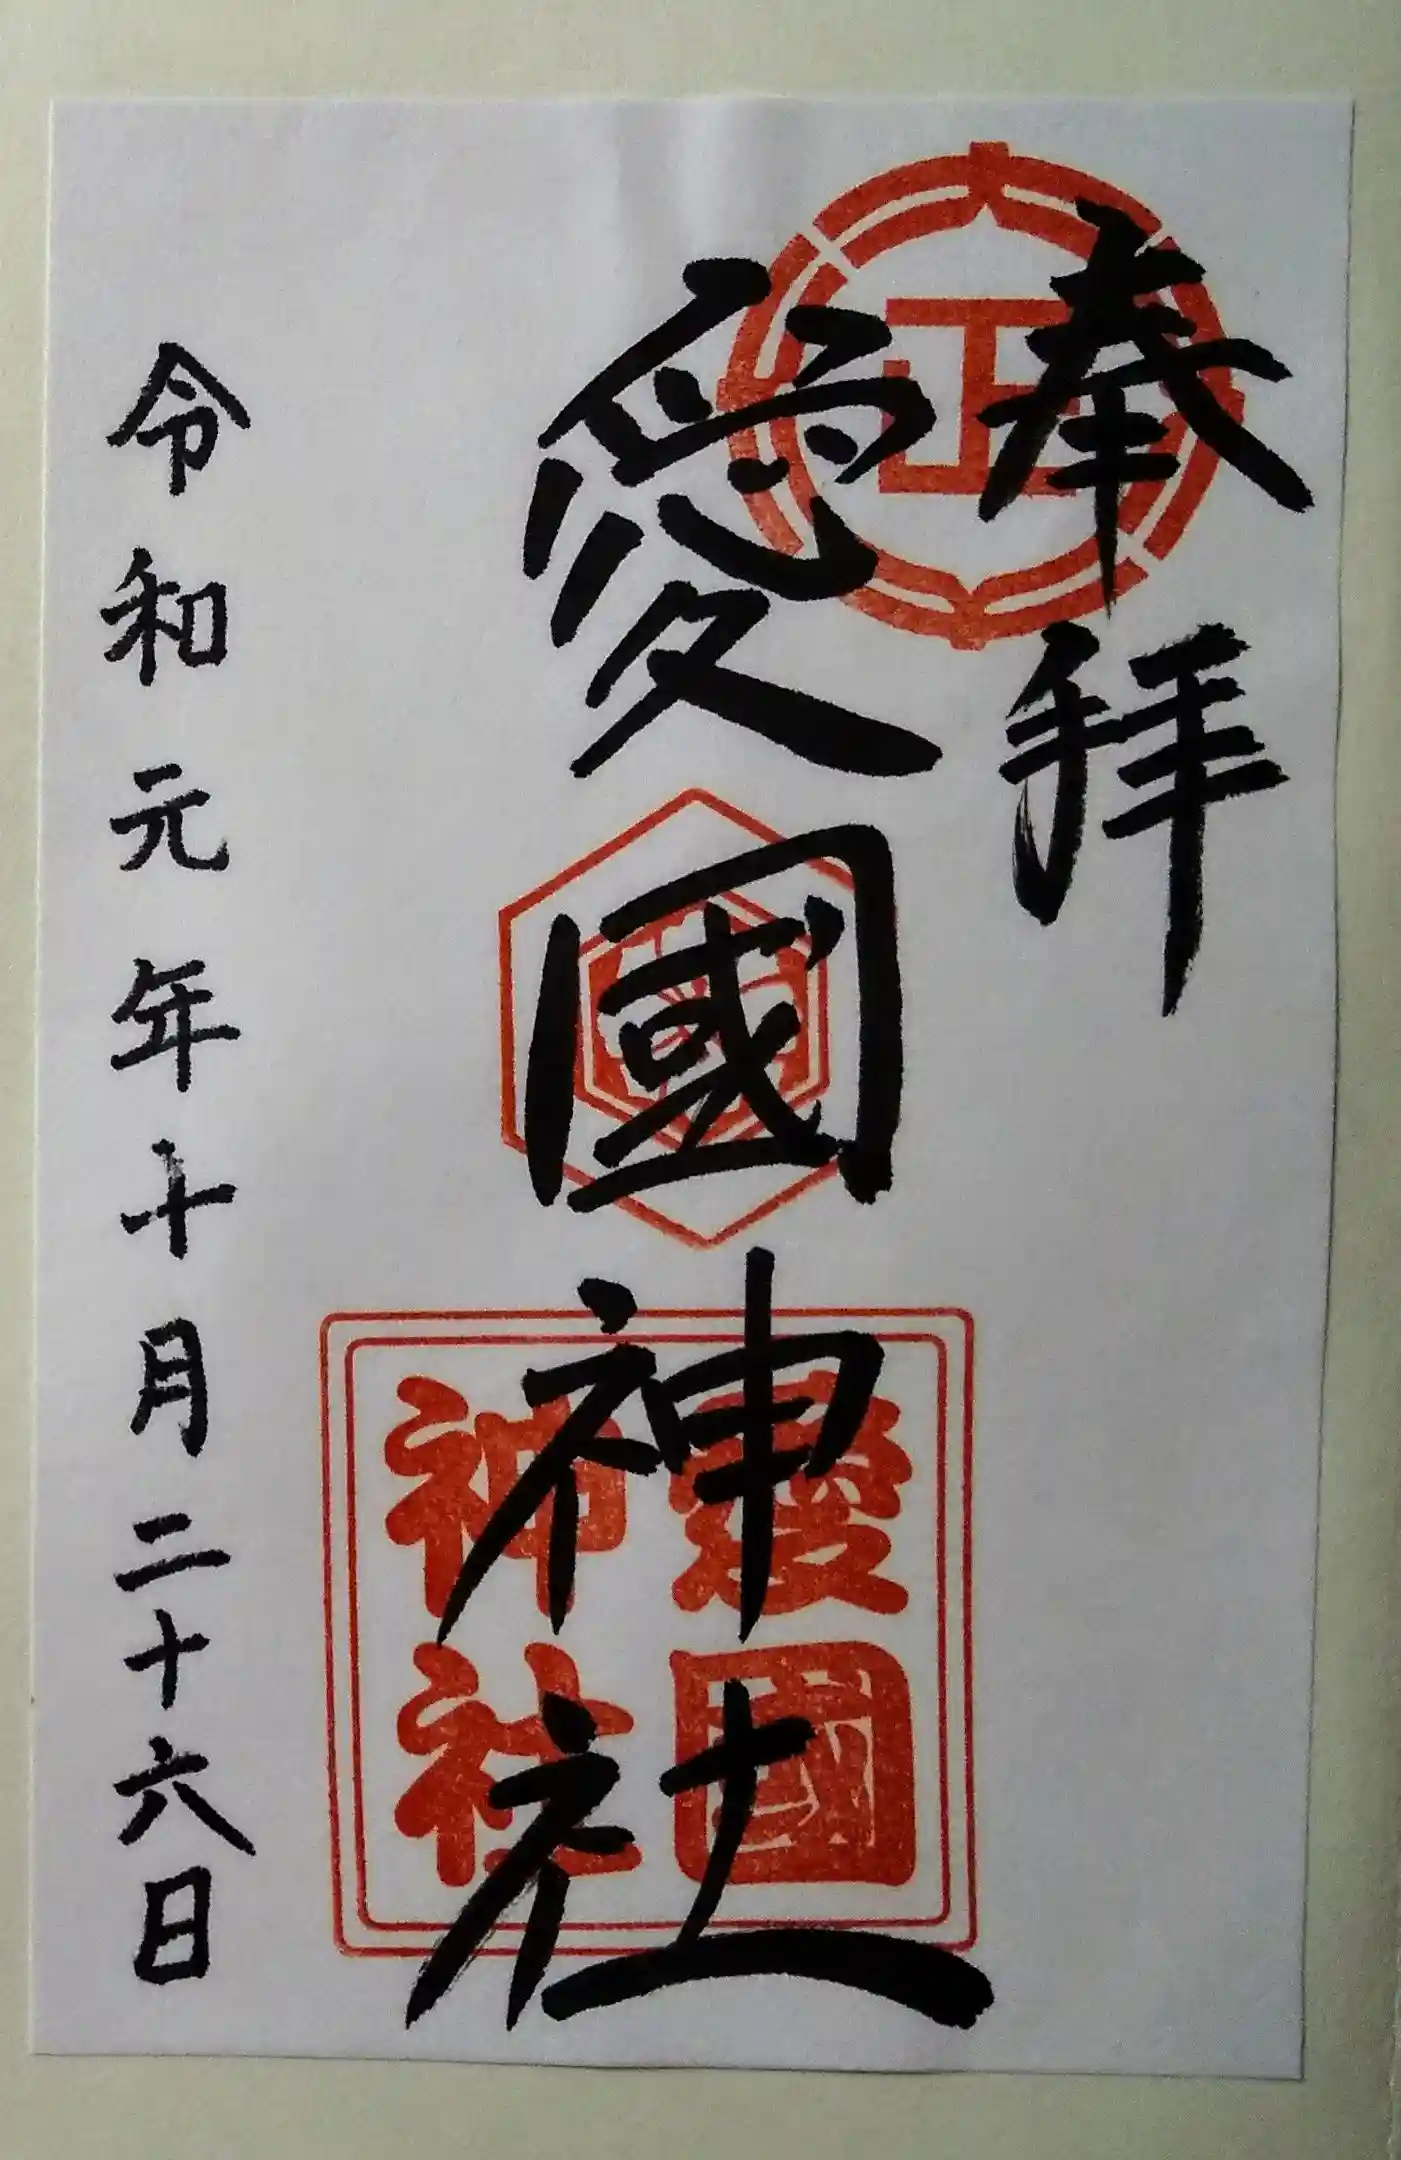 奉拝
愛國神社
令和元年十月二十六日
正
愛國
神社